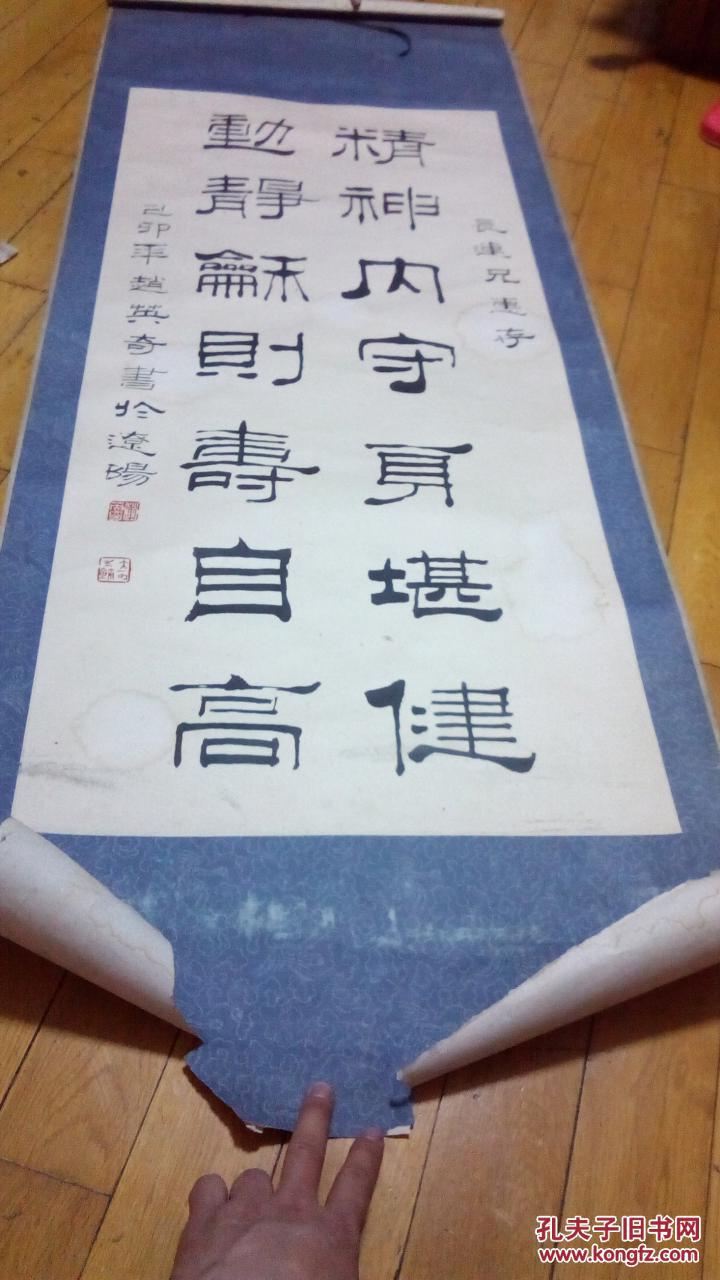 良建兄惠存
精神内守身堪健
動靜龢則壽自高
己卯年趙英奇書於遼陽
孔夫子旧书网
www.kongfz.com